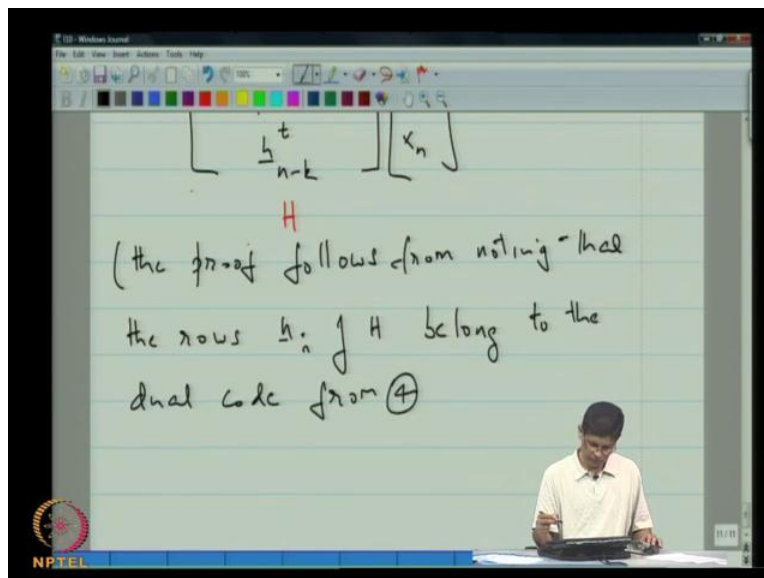 133 - Windows Journal
File Edit View Insert Actions Tools Help
100%
h^t_{n-k} x_n
H
(the proof follows from noting that
the rows h_i of H belong to the
dual code from ④
11/11
NPTEL